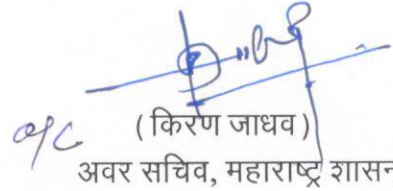 o/c (किरण जाधव)
अवर सचिव, महाराष्ट्र शासन